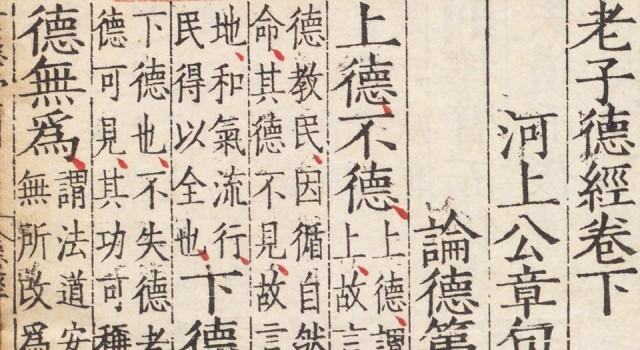 老子德經卷下
河上公章句
論德第
上德、不德、
上德、謂
上、故言
德教民、因循自然
命、其德不見、故言
地、和氣流行、
民得以全也、
下德
下德也、不失德者
德可見、其功可稱
德無爲、
謂法道安
無所改爲